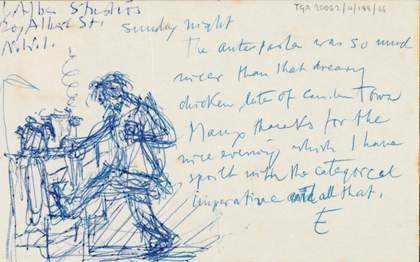 Studios
Albert St.
N.W.1.
TGA 20062/4/188/16
Sunday night
The antipasta was so much
nicer than that dreary
chicken, late of Camden Town
Many thanks for the
nice evening which I have
spoilt with the categorical
imperative and all that.
E